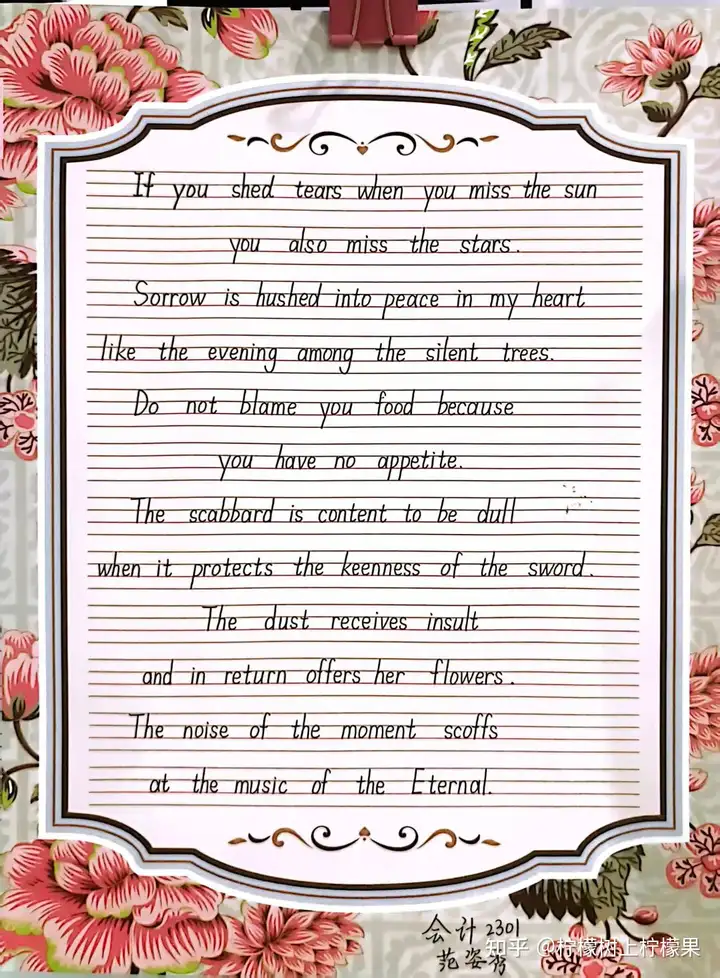 If you shed tears when you miss the sun
you also miss the stars.
Sorrow is hushed into peace in my heart
like the evening among the silent trees.
Do not blame you food because
you have no appetite.
The scabbard is content to be dull
when it protects the keenness of the sword.
The dust receives insult
and in return offers her flowers.
The noise of the moment scoffs
at the music of the Eternal.
会计 2301
范姿
知乎 @柠檬树上柠檬果